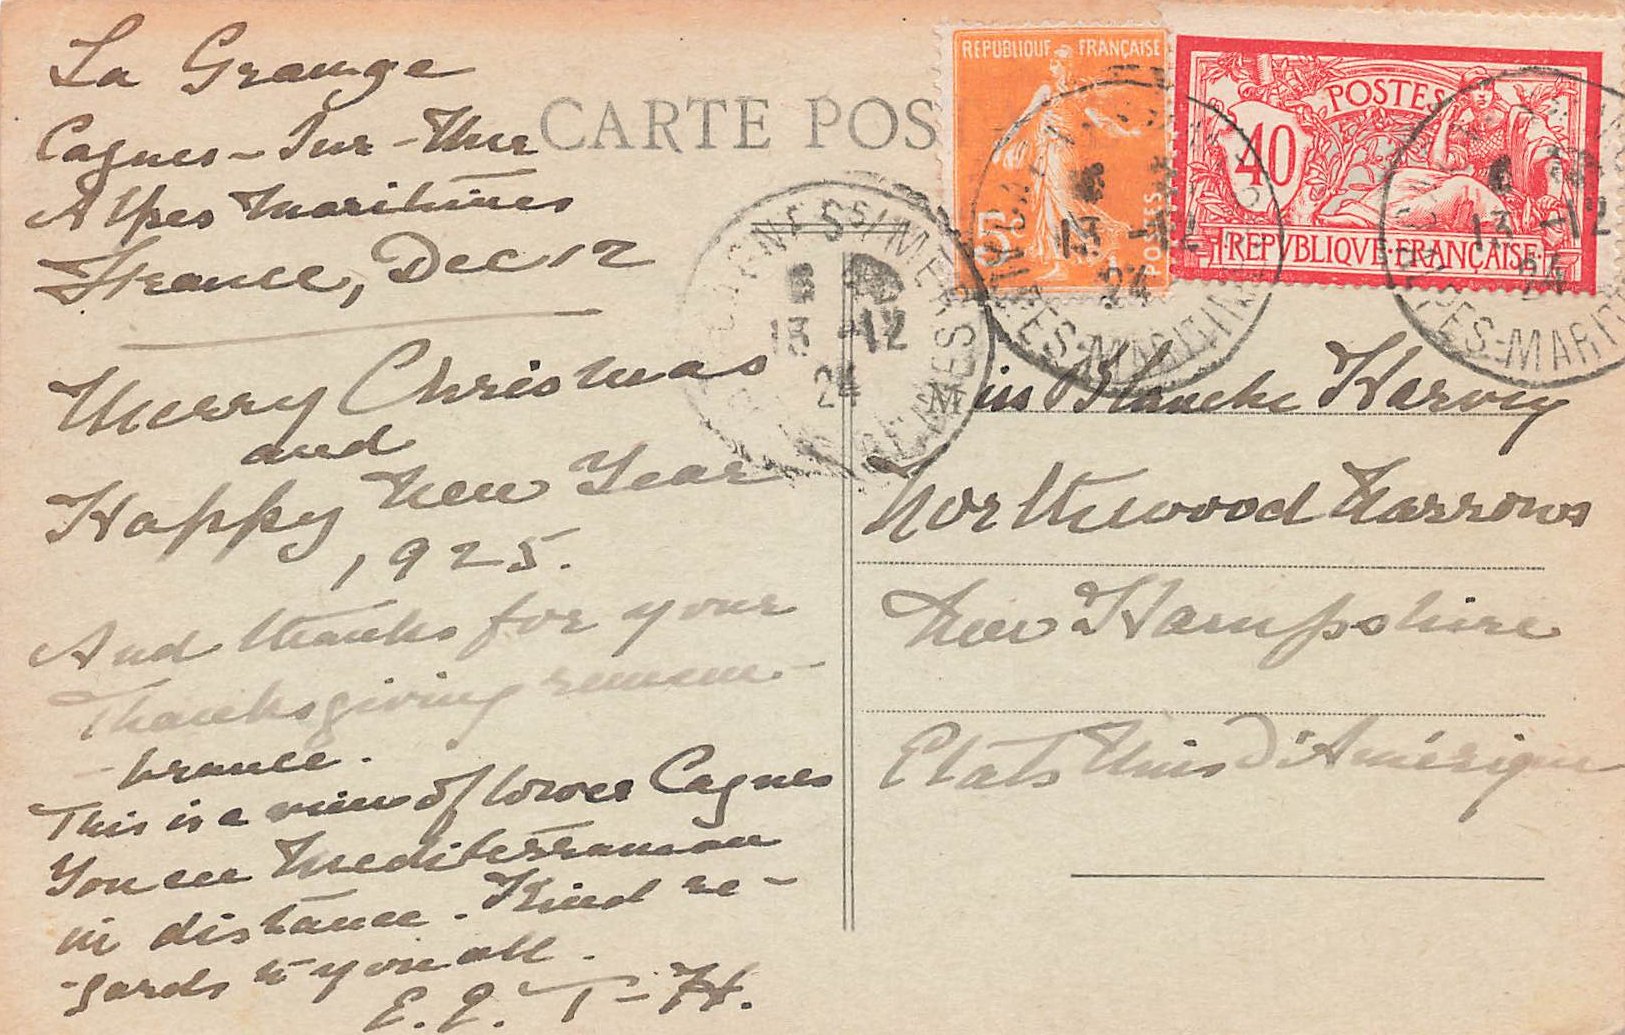 La Grange
Cagnes-Sur-Mer
Alpes Maritimes
France, Dec 12
Merry Christmas
and
Happy New Year
1925.
And thanks for your
Thanksgiving remem-
-brance.
This is a view of lower Cagnes
You see Mediterranean
in distance. Kind re-
-gards to you all.
E. E. T-H.
CARTE POS
REPUBLIQUE FRANÇAISE
5c
POSTES
POSTES
40
REPVBLIQVE FRANÇAISE
CAGNES S/ MER
13 -12
24
ALPES-MARITIMES
13 -12
24
ALPES-MARITIMES
13 -12
24
ALPES-MARIT
Miss Blanche Harvey
Northwood Narrows
New Hampshire
Etats Unis D'Amérique